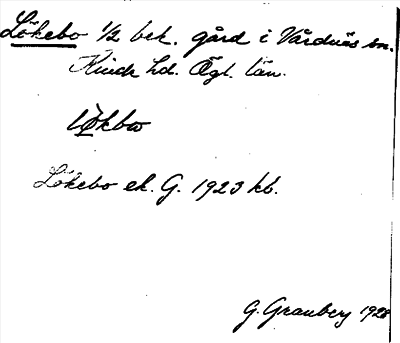 Lökebo 1/2 bek. gård i Vårdnäs sn.
Kinda hd. Ögl. län.
Lökebo ek. G. 1923 kb.
G. Granberg 1928